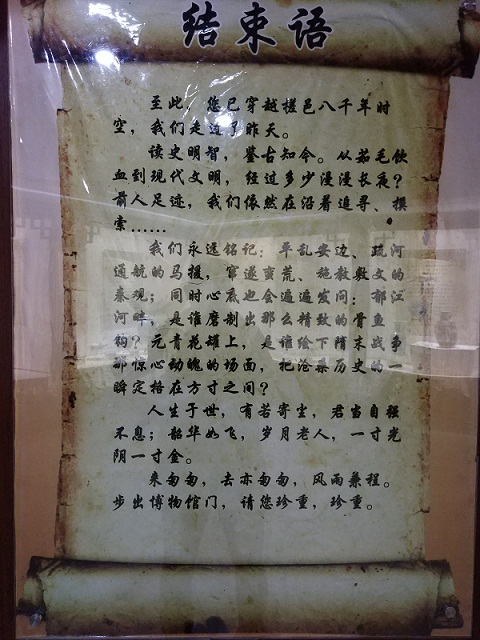 结束语
至此，您已穿越槎邑八千年时
空，我们走进了昨天。
读史明智，鉴古知今。从茹毛饮
血到现代文明，经过多少漫漫长夜？
前人足迹，我们依然在沿着追寻、摸
索……
我们永远铭记：平乱安边、疏河
通航的马援，窜逐蛮荒、施教敷文的
秦观；同时心底也会遍遍发问：郁江
河畔，是谁磨制出那么精致的骨鱼
钩？元青花罐上，是谁绘下隋末战争
那惊心动魄的场面，把沧桑历史的一
瞬定格在方寸之间？
人生于世，有若寄尘，君当自强
不息；韶华如飞，岁月老人，一寸光
阴一寸金。
来匆匆，去亦匆匆，风雨兼程。
步出博物馆门，请您珍重，珍重。